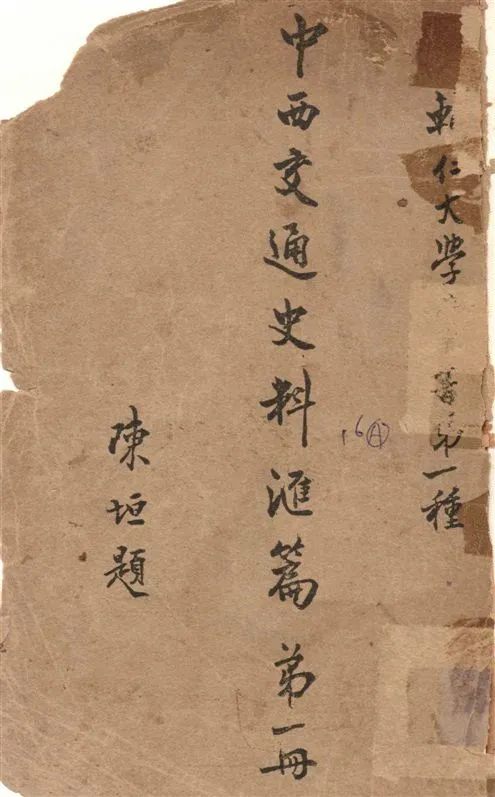 輔仁大學
書第一種
中西交通史料滙篇 第一冊
16Ⓐ
陳垣題